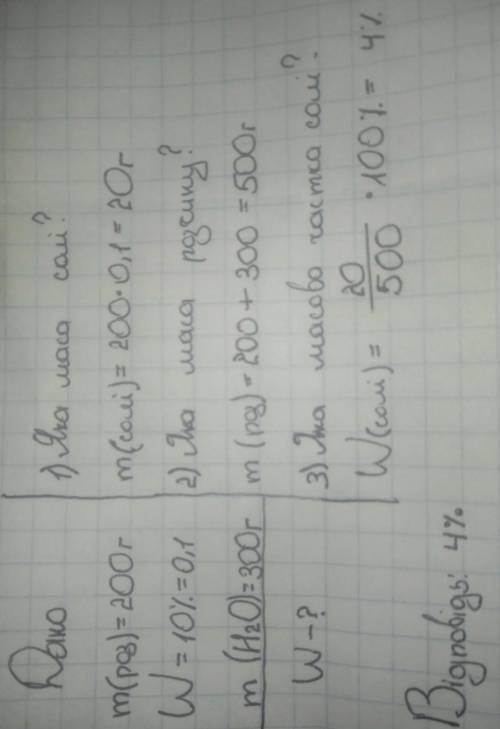 Дано
m(роз)=200г
W=10%=0,1
m(H2O)=300г
W-?
1) Яка маса солі?
m(солі)=200·0,1=20г
2) Яка маса розчину?
m(роз)=200+300=500г
3) Яка масова частка солі?
W(солі)= 20/500 ·100%= 4%
Відповідь: 4%